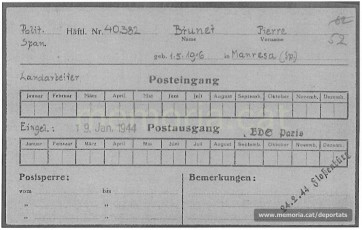 Polit. Häftl. Nr. 40382 Brunet Pierre
Span. Name Vorname 52
geb. 1.5.1916 in Manresa (Sp)
Landarbeiter Posteingang
Januar Februar März April Mai Juni Juli August Septemb. Oktober Novemb. Dezemb.
Eingel.: 19. Jan. 1944 Postausgang BDS Paris
Januar Februar März April Mai Juni Juli August Septemb. Oktober Novemb. Dezemb.
Postsperre: Bemerkungen:
vom bis
" "
" "
24.2.44 Floßenbürg
www.memoria.cat/deportats